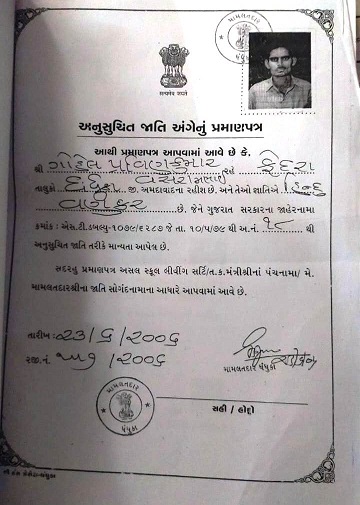 सत्यमेव जयते
મામલતદાર
અનુસુચિત જાતિ અંગેનું પ્રમાણપત્ર
આથી પ્રમાણપત્ર આપવામાં આવે છે કે,
શ્રી ગોહેલ પ્રવિણકુમાર રહે ફેદરા
તાલુકો જી. અમદાવાદના રહીશ છે. અને તેઓ જાતિએ હિન્દુ
વણકર છે. જેને ગુજરાત સરકારના જાહેરનામા
ક્રમાંક : એસ.ટી.ડબલ્યુ-૧૦૭૯/૬૨૮૭ તા. ૧૦/૫/૭૯ થી અ.નં. થી
અનુસુચિત જાતિ તરીકે માન્યતા આપેલ છે.
સદરહુ પ્રમાણપત્ર અસલ સ્કુલ લીવીંગ સર્ટિ/ત.ક.મંત્રીશ્રીનાં પંચનામા/ મે.
મામલતદારશ્રીના જાતિ સોગંદનામાના આધારે આપવામાં આવે છે.
તારીખ:-૨૩/૬/૨૦૦૬
રજી.નં. /૨૦૦૬
મામલતદાર ધંધુકા
મામલતદાર
ધંધુકા
સહી / હોદ્દો